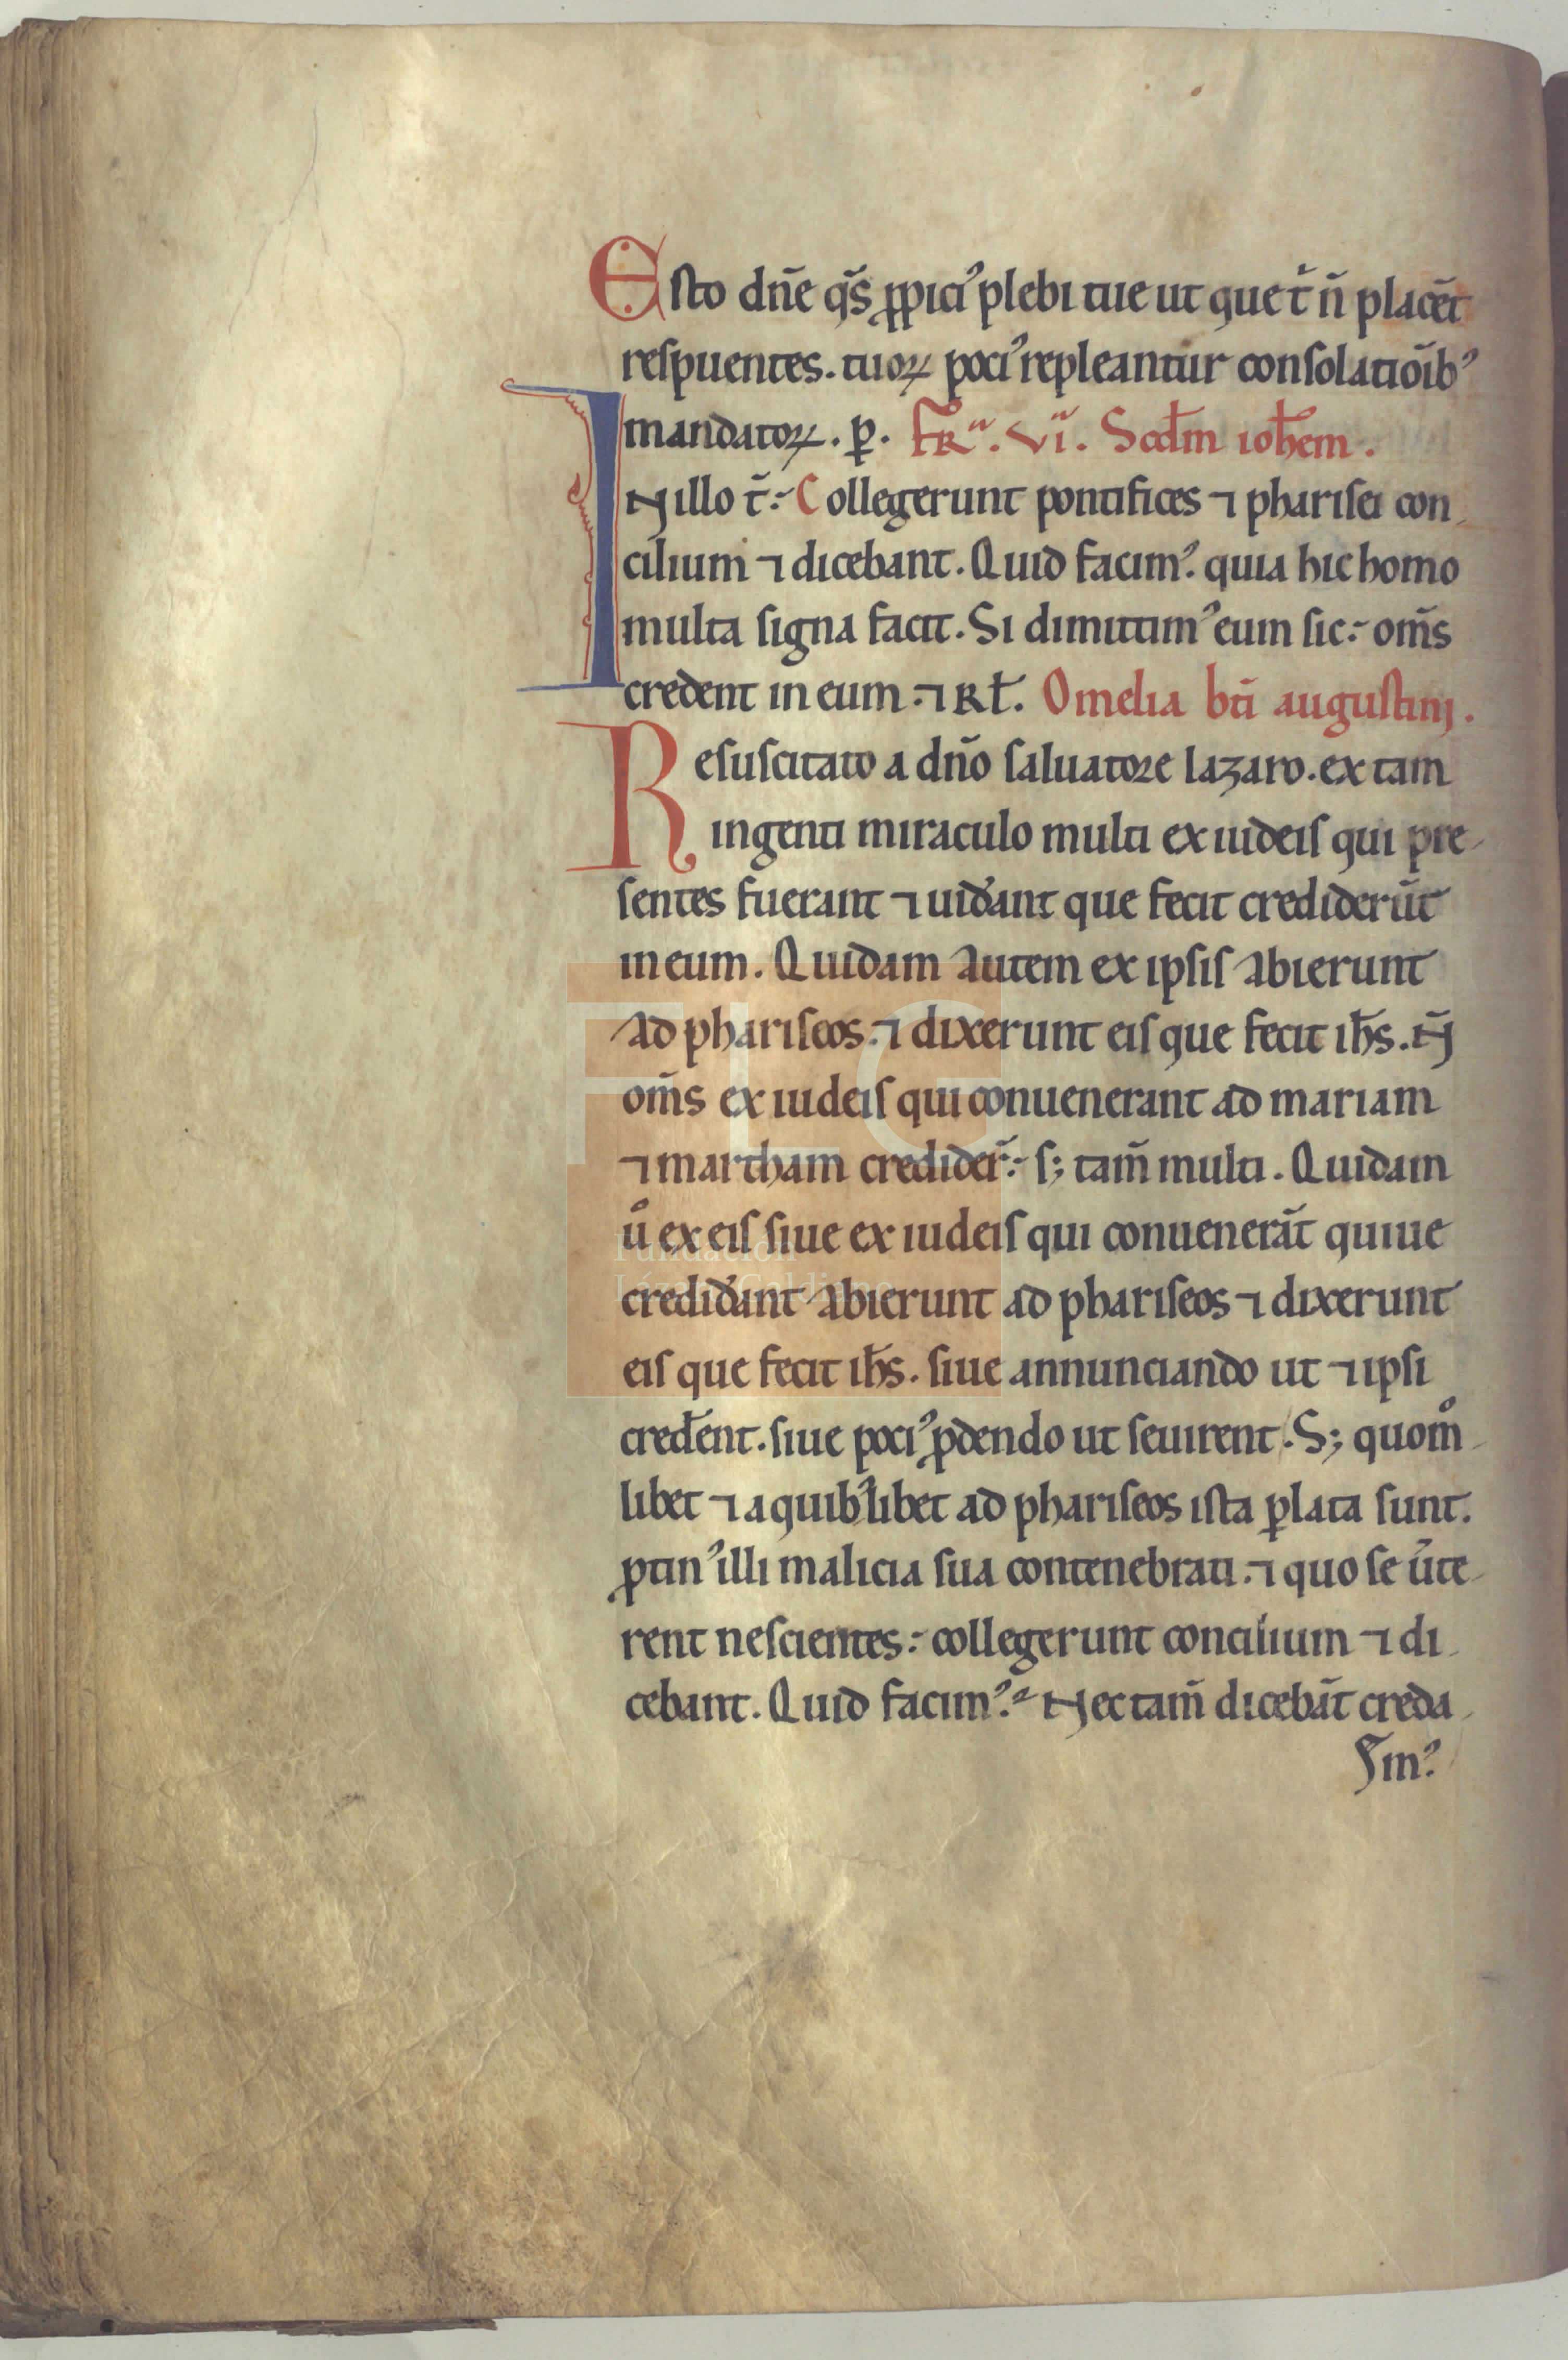 Esto dñe qs̃ ꝓpiciꝰ plebi tue ut que t̉ ñ placẽt
respuentes. tuoꝝ pociꝰ repleantur consolatiõibꝰ
mandatoꝝ. ꝑ. FRᵃ. VIᵃ. Scd̃m ioh̃em.
IN illo t̃. Collegerunt pontifices ⁊ pharisei con
cilium ⁊ dicebant. Quid facimꝰ. quia hic homo
multa signa facit. Si dimittimꝰ eum sic. om̃s
credent in eum. ⁊ Rł. Omelia bt̃i augustinj.
Resuscitato a dño saluatore lazaro. ex tam
ingenti miraculo multi ex iudeis qui pre
sentes fuerant ⁊ uid̉ant que fecit crediderũt
in eum. Quidam autem ex ipsis abierunt
ad phariseos. ⁊ dixerunt eis que fecit ih̃s. Ñ
om̃s ex iudeis qui conuenerant ad mariam
⁊ martham credider̃. s; tam̃ multi. Quidam
uͦ ex eis siue ex iudeis qui conuenerãt quiue
credid̉ant abierunt ad phariseos ⁊ dixerunt
eis que fecit ih̃s. siue annunciando ut ⁊ ipsi
cred̃ent. siue pociꝰ ꝓdendo ut seuirent. S; quomͦ
libet ⁊ a quibꝰlibet ad phariseos ista ꝑlata sunt.
ꝓtinꝰ illi malicia sua contenebrati. ⁊ quo se ũte
rent nescientes. collegerunt concilium ⁊ di
cebant. Quid facimꝰ. Nec tam̃ dicebãt creda
mꝰ
FLG
Fundación
Lázaro Galdiano